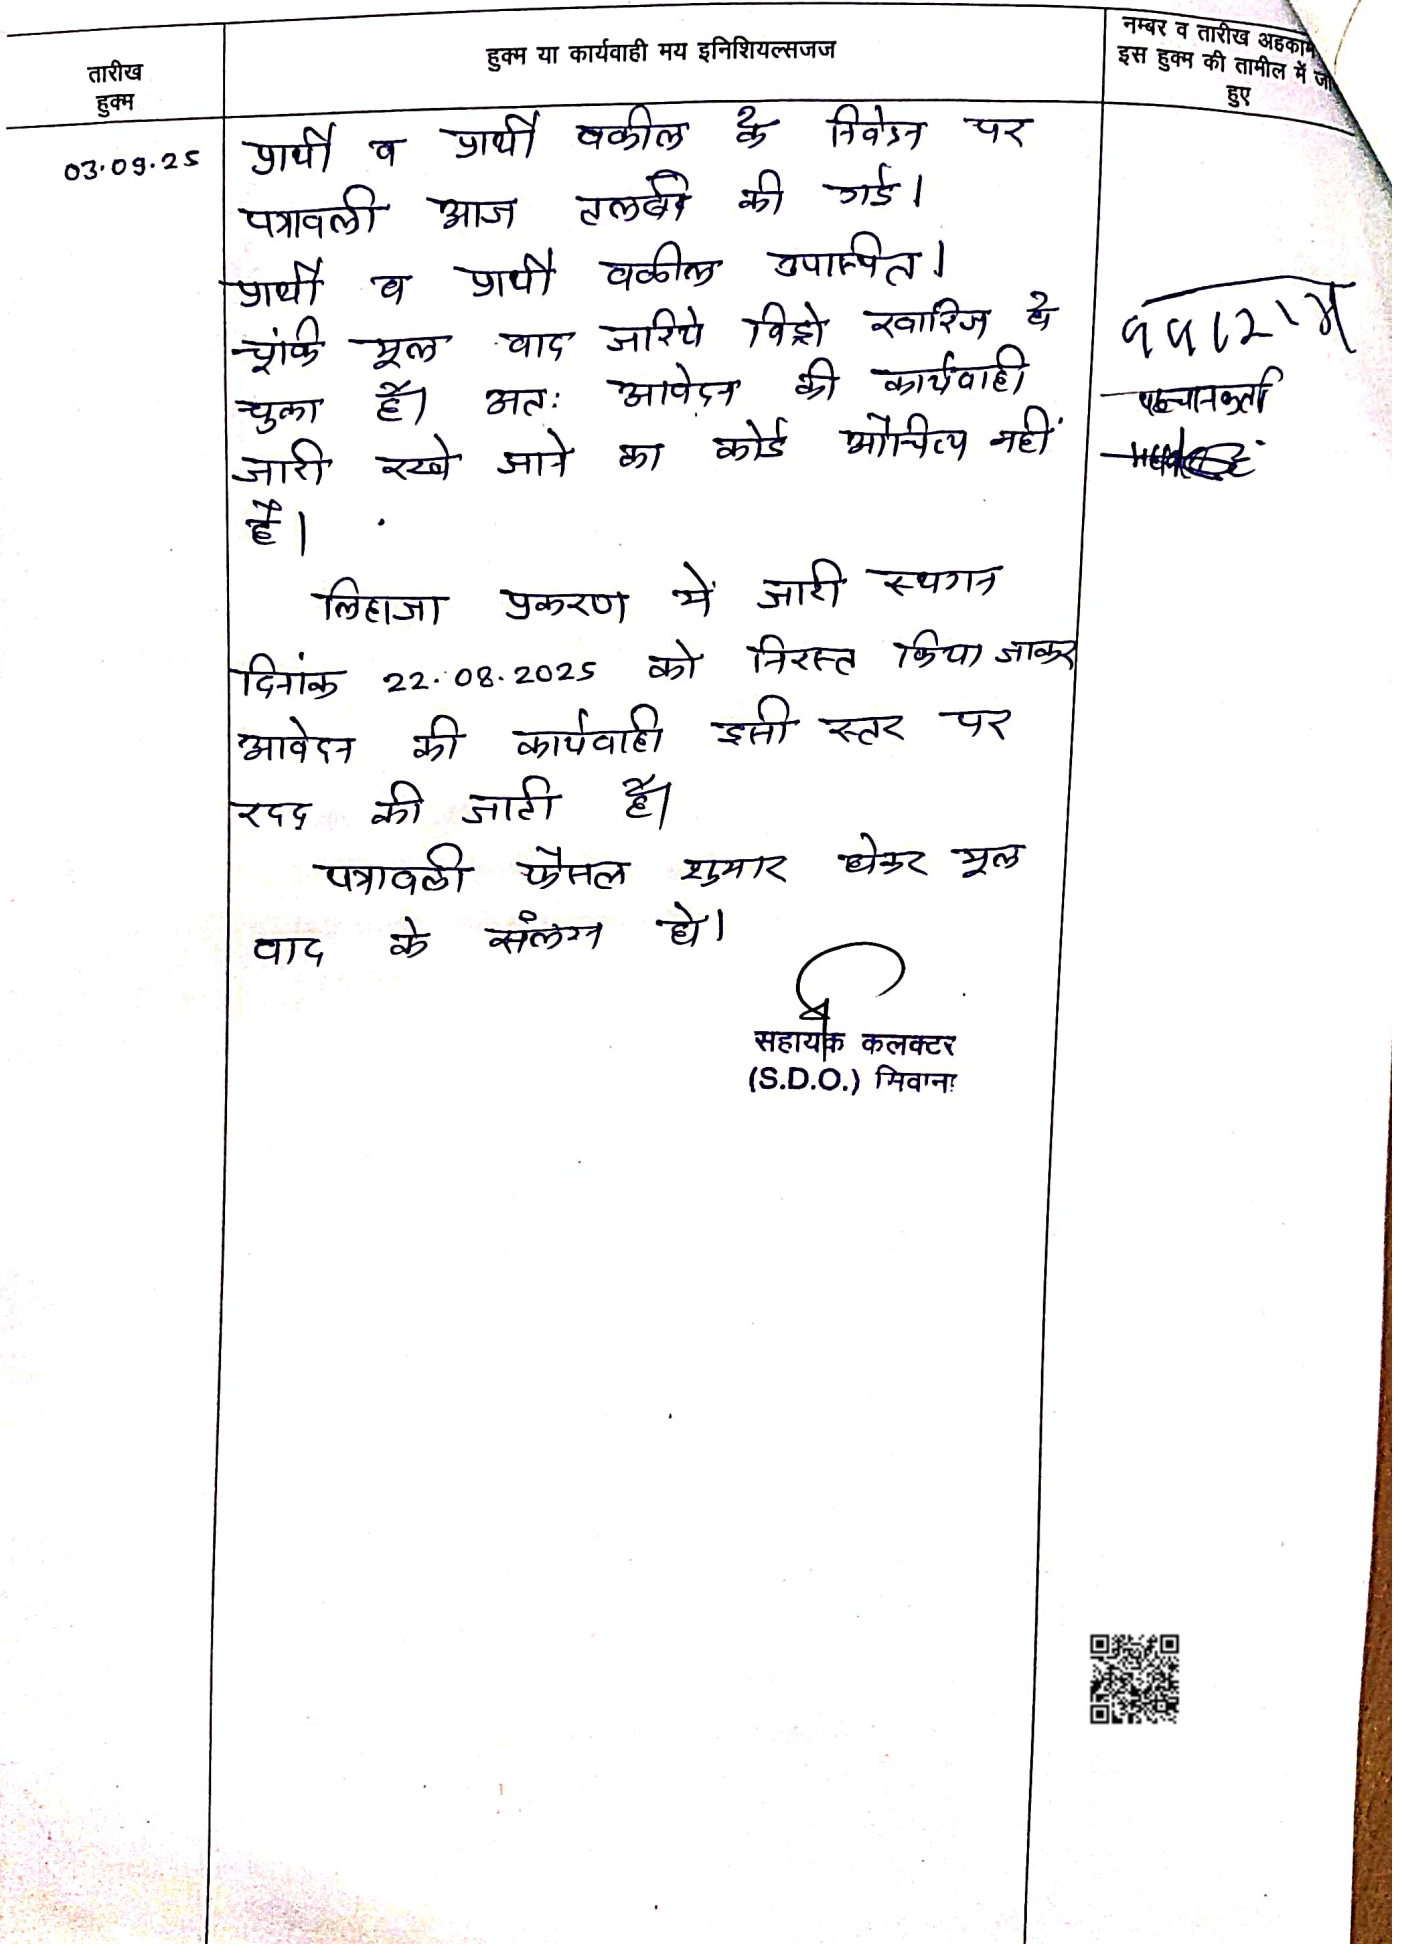 तारीख
हुक्म
हुक्म या कार्यवाही मय इनिशियल्सजज
नम्बर व तारीख अहकाम
इस हुक्म की तामील में जा
हुए
03.09.25
प्रार्थी व प्रार्थी वकील के निवेदन पर
पत्रावली आज तलबी की गई।
प्रार्थी व प्रार्थी वकील उपस्थित।
चूंकि मूल वाद जरिये विड्रो खारिज हो
चुका है। अतः आवेदन की कार्यवाही
जारी रखे जाने का कोई औचित्य नहीं
है।
लिहाजा प्रकरण में जारी स्थगन
दिनांक 22.08.2025 को निरस्त किया जाकर
आवेदन की कार्यवाही इसी स्तर पर
रदद की जाती है।
पत्रावली फैसल शुमार होकर मूल
वाद के संलग्न हो।
पहचानकर्ता
सहायक कलक्टर
(S.D.O.) सिवाना